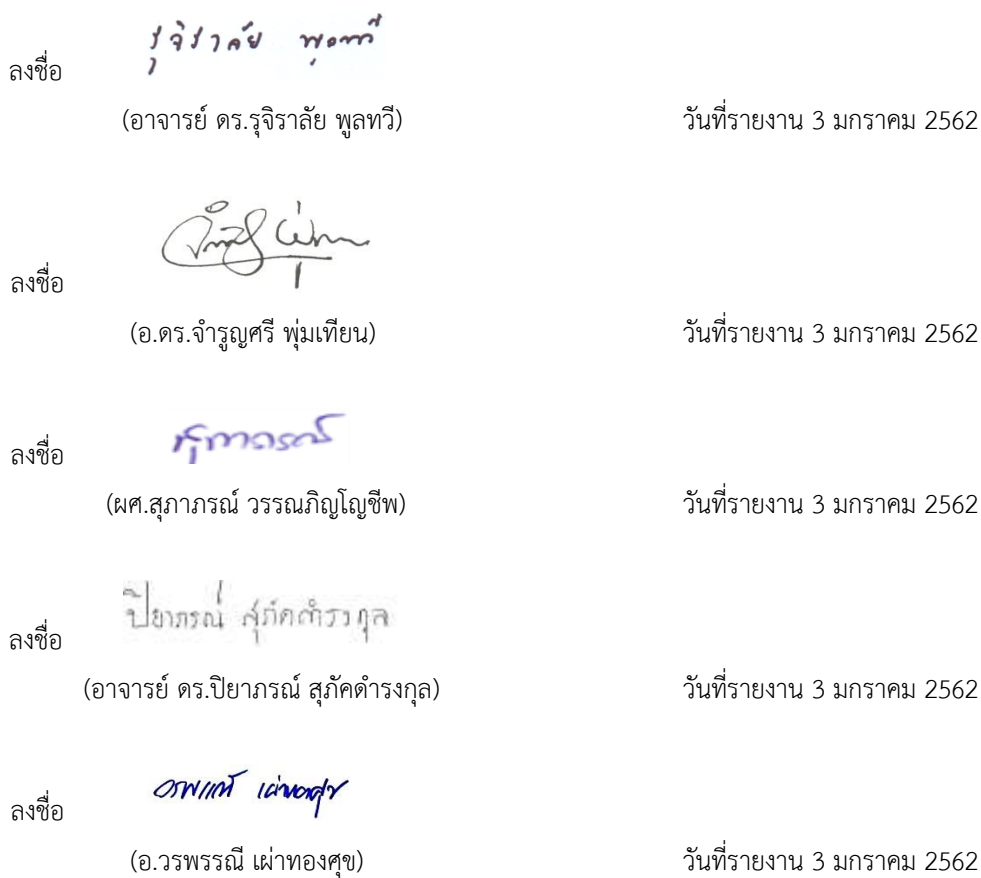 รุจิราลัย พูลทวี
ลงชื่อ
(อาจารย์ ดร.รุจิราลัย พูลทวี) วันที่รายงาน 3 มกราคม 2562
ลงชื่อ
(อ.ดร.จำรูญศรี พุ่มเทียน) วันที่รายงาน 3 มกราคม 2562
สุภาภรณ์
ลงชื่อ
(ผศ.สุภาภรณ์ วรรณภิญโญชีพ) วันที่รายงาน 3 มกราคม 2562
ปิยาภรณ์ สุภัคดำรงกุล
ลงชื่อ
(อาจารย์ ดร.ปิยาภรณ์ สุภัคดำรงกุล) วันที่รายงาน 3 มกราคม 2562
วรพรรณี เผ่าทองศุข
ลงชื่อ
(อ.วรพรรณี เผ่าทองศุข) วันที่รายงาน 3 มกราคม 2562